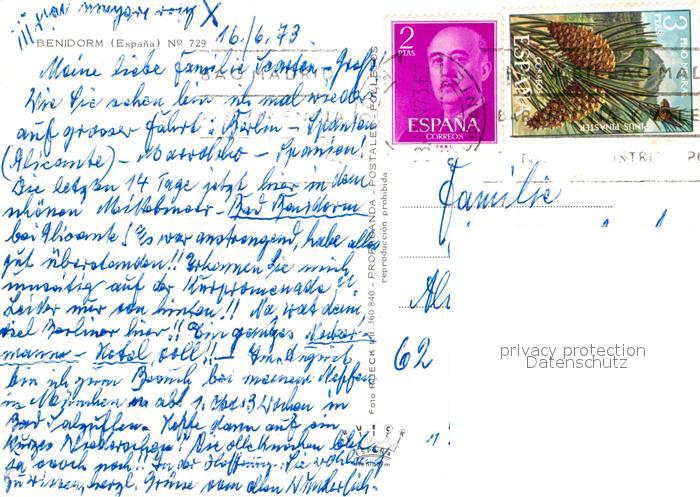 16/6.73.
BENIDORM (España) Nº 729
Meine liebe Familie
Wie Sie sehen bin ich mal wieder
auf grosser Fahrt: Berlin - Spanien
(Alicante) - Marokko - Spanien!
Die letzten 14 Tage jetzt hier in dem
schönen Mittelmeer - Bad Benidorm
bei Alicante! Es war anstrengend, habe alles
gut überstanden!! Erkennen Sie mich
auf der Kurpromenade
Leider nur von hinten!! Na, wat denn,
viel Berliner hier!! Ein ganzes Necker-
mann - Hotel voll!! -
bin ich zum Besuch bei meinem Neffen
in München ab 1. 3 Wochen in
Bad Salzuflen. Hoffe dann auf ein
kurzes Wiedersehen! Die lebt
ja auch noch!! In der Hoffnung, Sie wohlauf
zu wissen, herzl. Grüsse vom alten
Foto RUECK 360 840 - PROPAGANDA - POSTALES - POLLENSA
reproducción prohibida
2
PTAS
ESPAÑA
CORREOS
F.N.M.T.
3
PTAS
ESPAÑA
CORREOS
PINUS PINASTER
Familie
62
privacy protection
Datenschutz